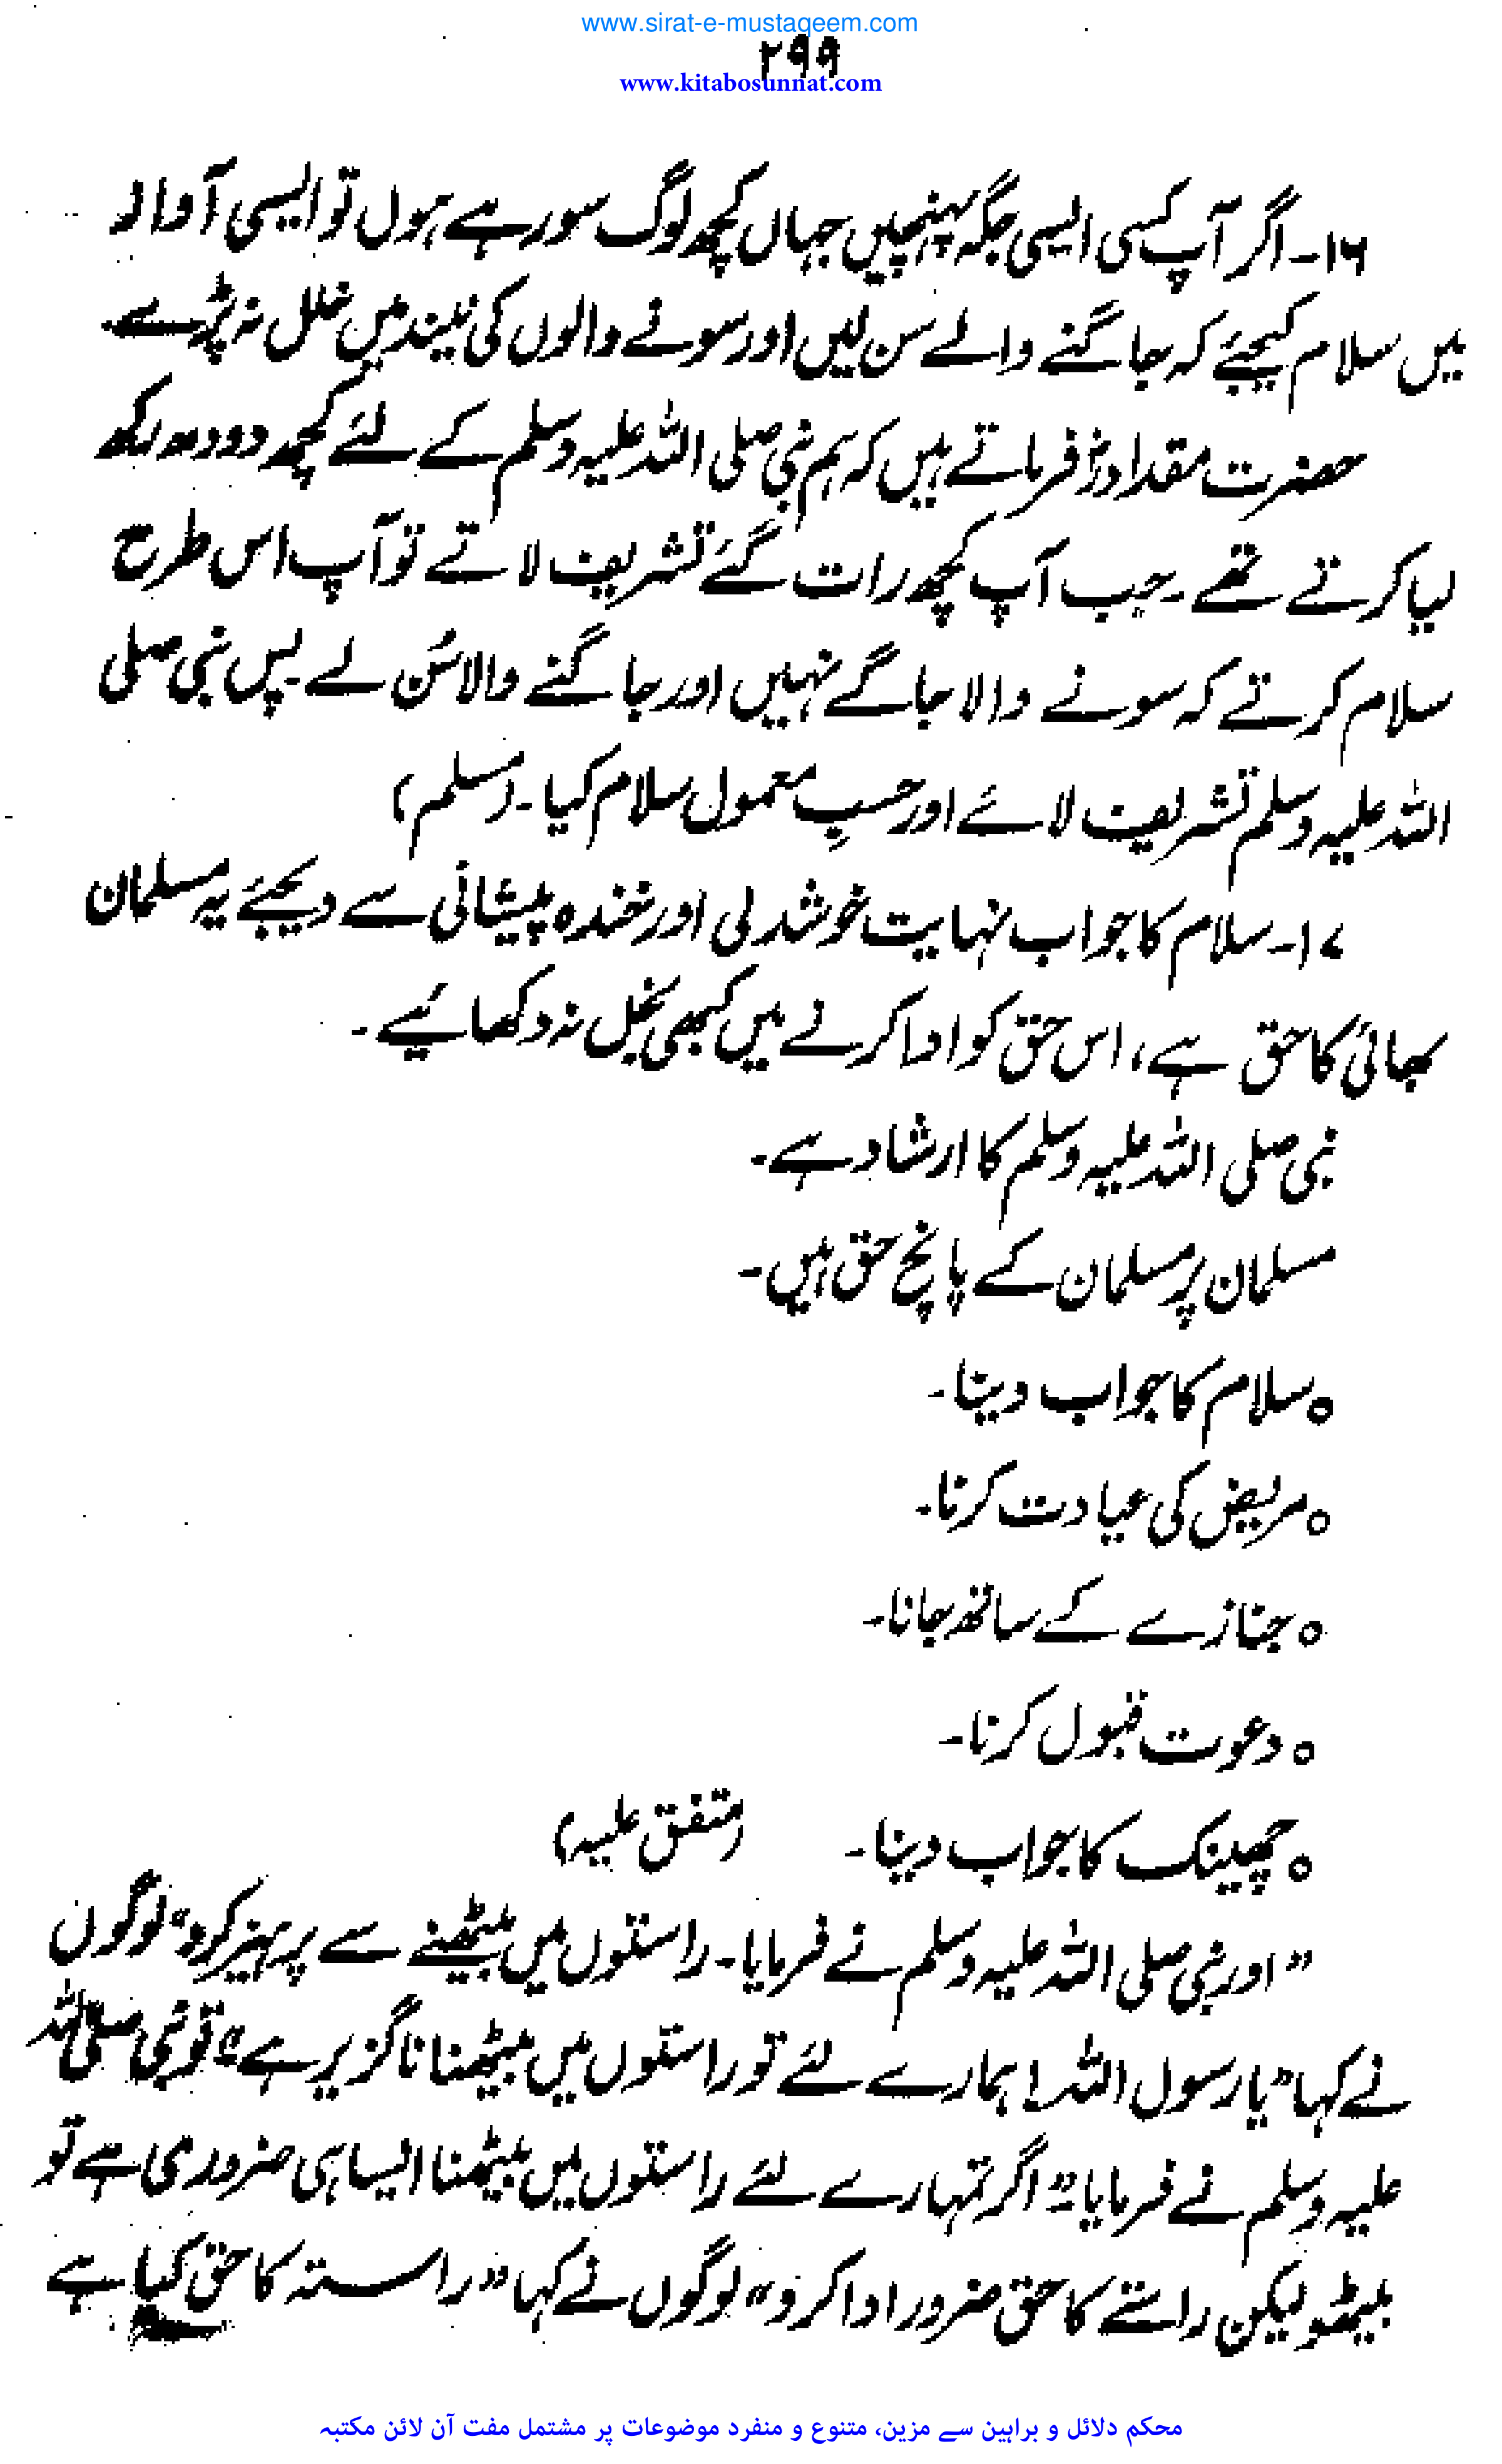 www.sirat-e-mustaqeem.com
۲۹۹
www.kitabosunnat.com
۱۶۔ اگر آپ کسی ایسی جگہ پہنچیں جہاں کچھ لوگ سو رہے ہوں تو ایسی آواز
میں سلام کیجئے کہ جاگنے والے سن لیں اور سونے والوں کی نیند میں خلل نہ پڑے۔
حضرت مقدادؓ فرماتے ہیں کہ ہم نبی صلی اللہ علیہ وسلم کے لئے کچھ دودھ رکھ
لیا کرتے تھے۔ جب آپ کچھ رات گئے تشریف لاتے تو آپ اس طرح
سلام کرتے کہ سونے والا جاگے نہیں اور جاگنے والا سُن لے۔ پس نبی صلی
اللہ علیہ وسلم تشریف لائے اور حسبِ معمول سلام کیا۔ (مسلم)
۱۷۔ سلام کا جواب نہایت خوشدلی اور خندہ پیشانی سے دیجئے یہ مسلمان
بھائی کا حق ہے، اس حق کو ادا کرنے میں کبھی بخل نہ دکھائیے۔
نبی صلی اللہ علیہ وسلم کا ارشاد ہے۔
مسلمان پر مسلمان کے پانچ حق ہیں۔
○ سلام کا جواب دینا۔
○ مریض کی عیادت کرنا۔
○ جنازے کے ساتھ جانا۔
○ دعوت قبول کرنا۔
○ چھینک کا جواب دینا۔ (متفق علیہ)
”اور نبی صلی اللہ علیہ وسلم نے فرمایا۔ راستوں میں بیٹھنے سے پرہیز کرو“ لوگوں
نے کہا ”یا رسول اللہ! ہمارے لئے تو راستوں میں بیٹھنا ناگزیر ہے“ تو نبی صلی اللہ
علیہ وسلم نے فرمایا۔ ”اگر تمہارے لئے راستوں میں بیٹھنا ایسا ہی ضروری ہے تو
بیٹھو لیکن راستے کا حق ضرور ادا کرو“ لوگوں نے کہا ”راستہ کا حق کیا ہے
محکم دلائل و براہین سے مزین، متنوع و منفرد موضوعات پر مشتمل مفت آن لائن مکتبہ